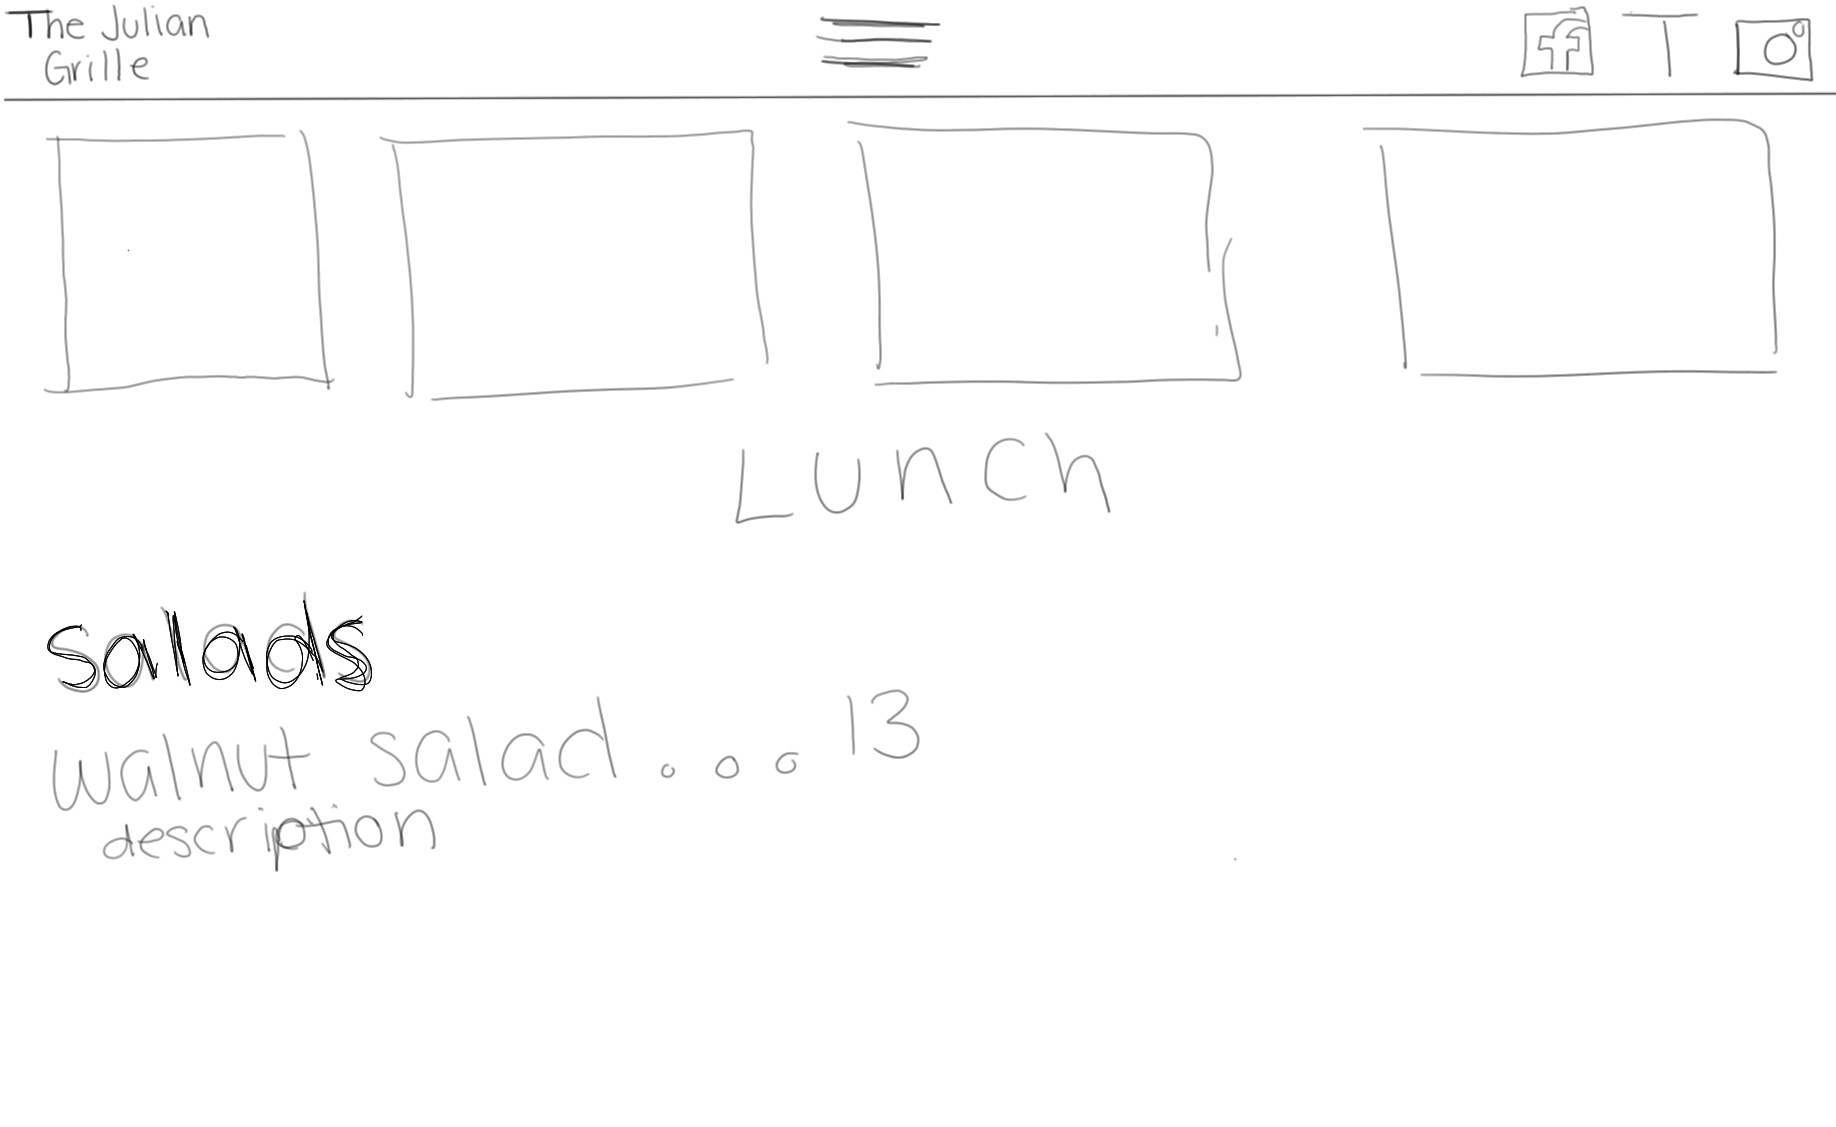 The Julian
Grille
f T
Lunch
Salads
walnut salad... 13
description